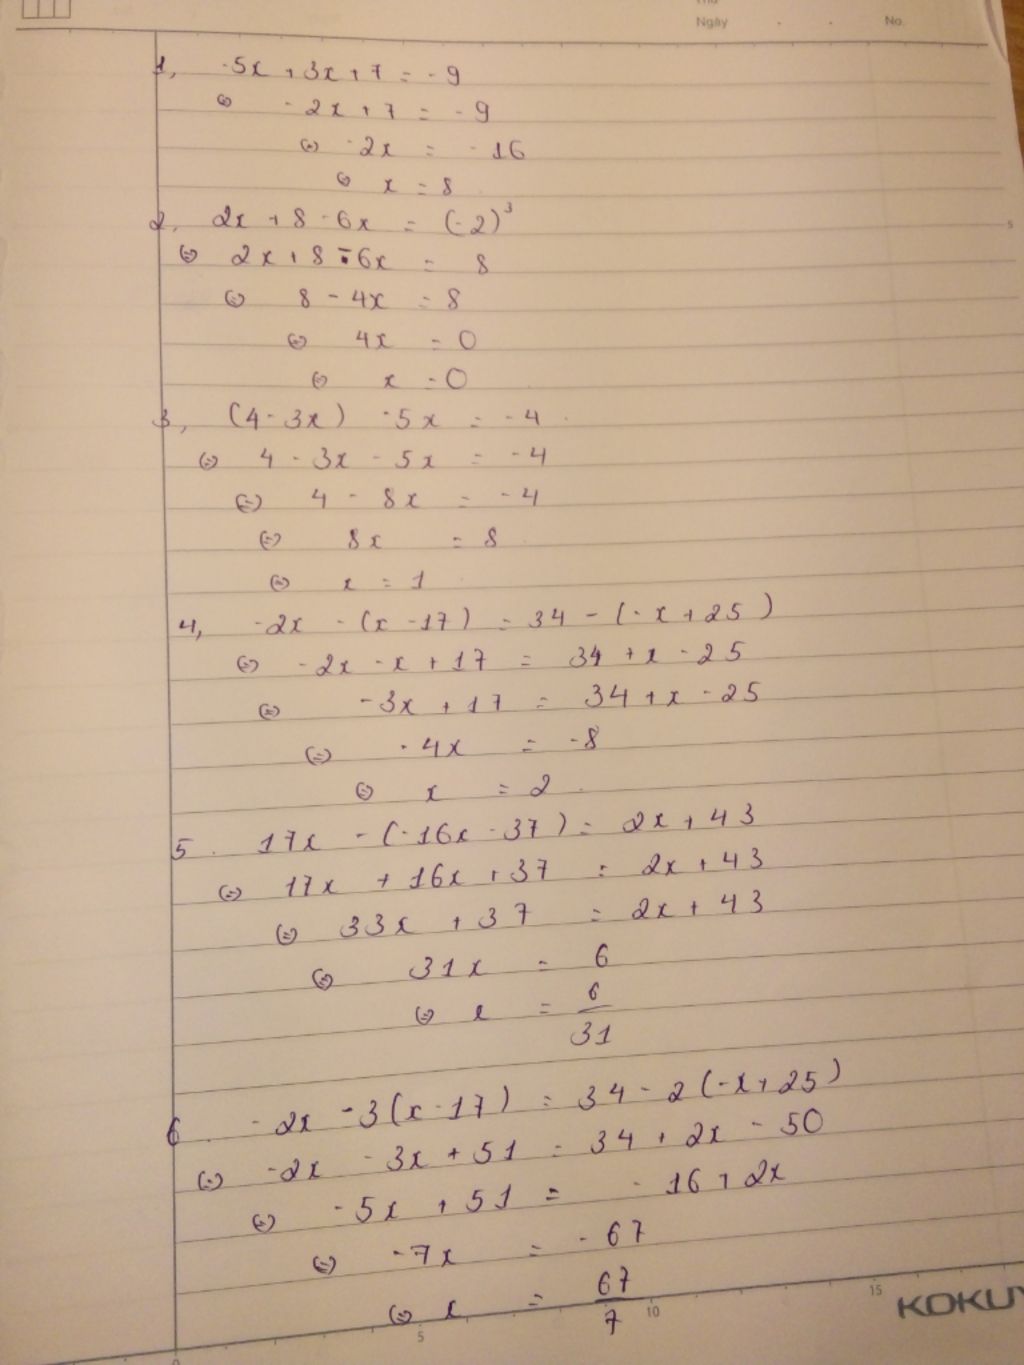 Thứ
Ngày . . No.
1, -5x + 3x + 7 = -9
⇔ -2x + 7 = -9
⇔ -2x = -16
⇔ x = 8
2, 2x + 8 - 6x = (-2)³
⇔ 2x + 8 - 6x = 8
⇔ 8 - 4x = 8
⇔ 4x = 0
⇔ x = 0
3, (4 - 3x) - 5x = -4
⇔ 4 - 3x - 5x = -4
⇔ 4 - 8x = -4
⇔ 8x = 8
⇔ x = 1
4, -2x - (x - 17) = 34 - (-x + 25)
⇔ -2x - x + 17 = 34 + x - 25
⇔ -3x + 17 = 34 + x - 25
⇔ -4x = -8
⇔ x = 2
5. 17x - (-16x - 37) = 2x + 43
⇔ 17x + 16x + 37 = 2x + 43
⇔ 33x + 37 = 2x + 43
⇔ 31x = 6
⇔ x = 6/31
6. -2x - 3(x - 17) = 34 - 2(-x + 25)
⇔ -2x - 3x + 51 = 34 + 2x - 50
⇔ -5x + 51 = -16 + 2x
⇔ -7x = -67
⇔ x = 67/7
0 5 10 15 KOKUY
5